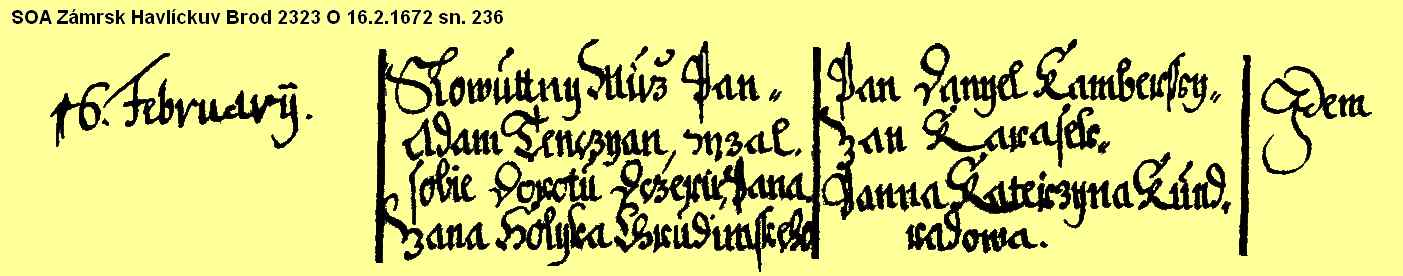 SOA Zámrsk Havlíckuv Brod 2323 O 16.2.1672 sn. 236
16. Februarÿ.
Slowúttny Múž Pan
Adam Tenczyan, wzal
sobie Dorotú Dczerú, Pana
Jana Holyka Chrúdimskeho
Pan Danyel Kamberssy
Jan Karasek.
Panna Katerzyna Kúnd
radowa.
Idem